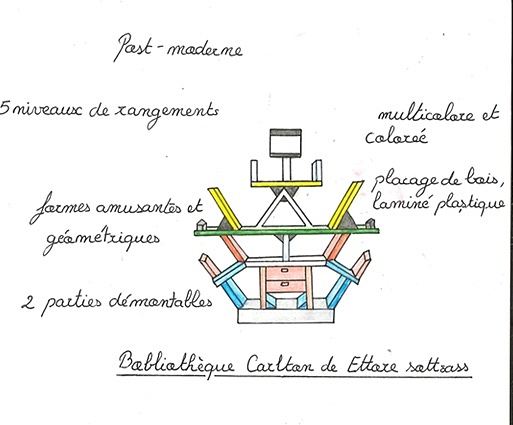 Post-moderne
5 niveaux de rangements
multicolore et
coloréé
placage de bois,
laminé plastique
formes amusantes et
géométriques
2 parties démontables
Bobliothèque Carlton de Ettore sottsass